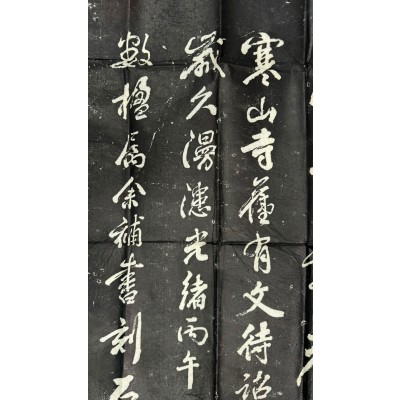 寒山寺旧有文待诏
歲久漫漶光緒丙午
數楹屬余補書刻石